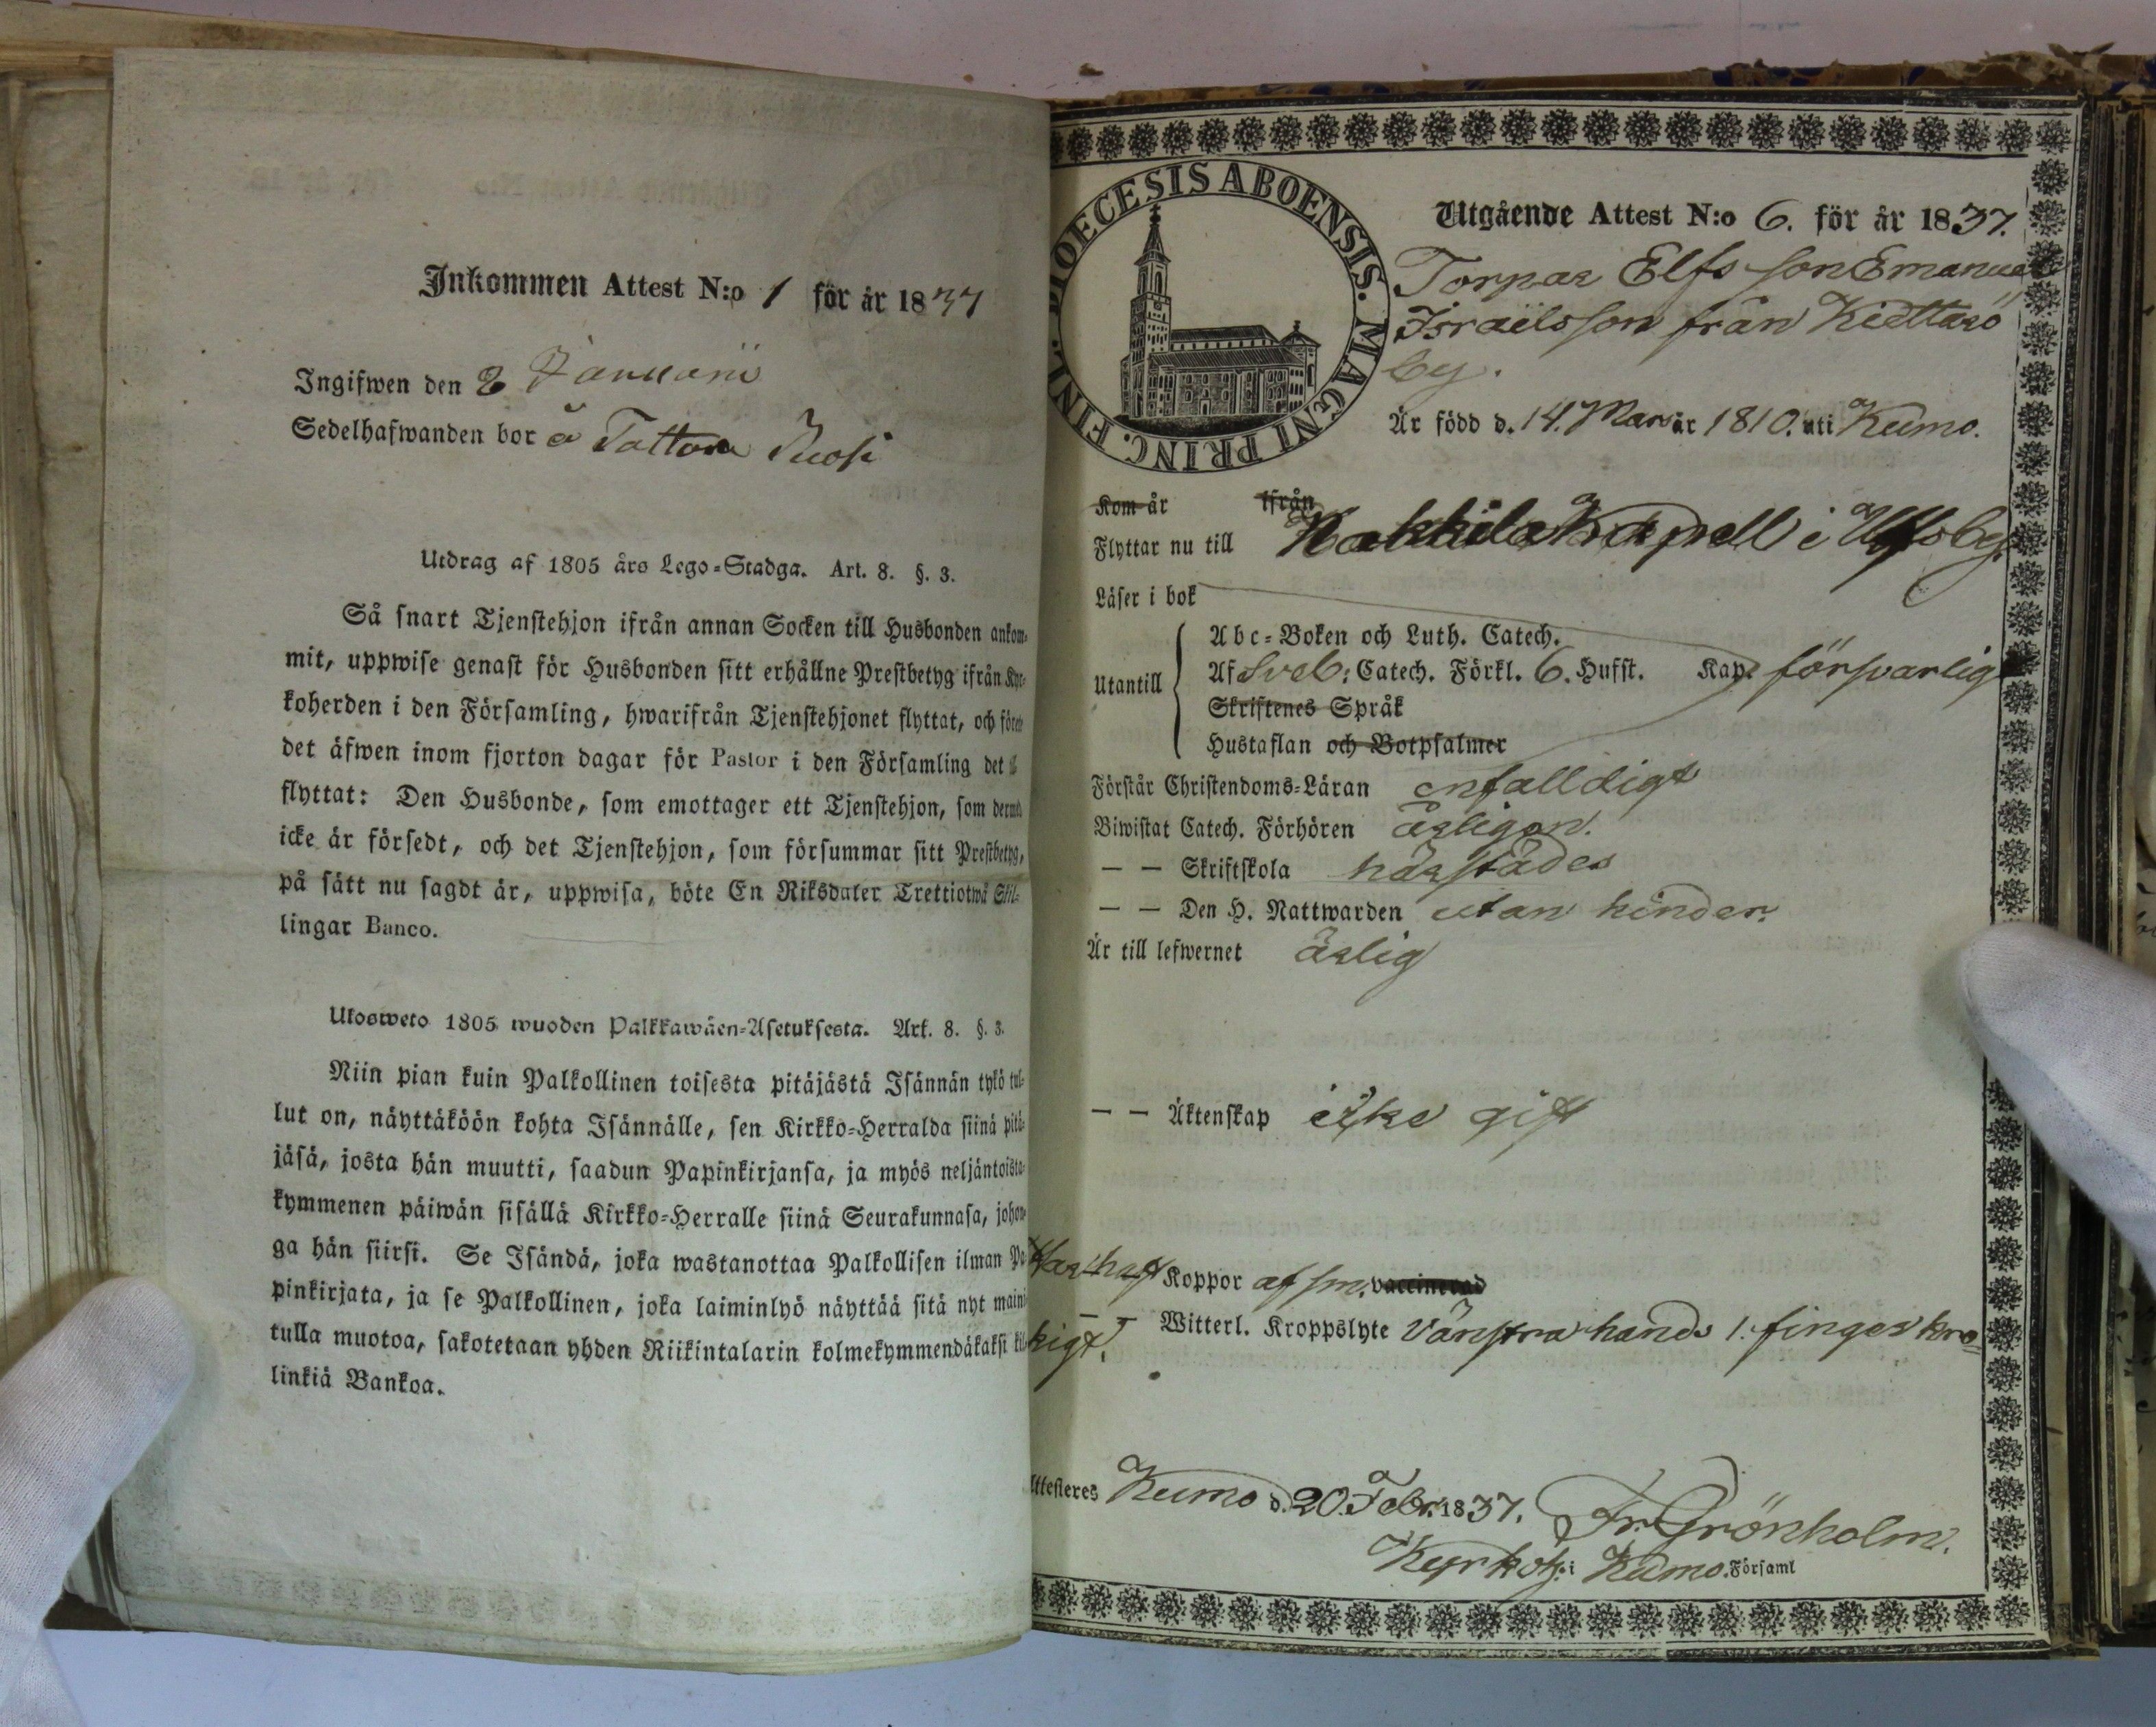 Inkommen Attest N:o 1 för år 1837
Ingifwen den 8 Januarii
Sedelhafwanden bor å Tattara Ruosi
Utdrag af 1805 års Lego-Stadga. Art. 8. §. 3.
Så snart Tjenstehjon ifrån annan Socken till Husbonden ankom-
mit, uppwise genast för Husbonden sitt erhållne Prestbetyg ifrån Kyr-
koherden i den Församling, hwarifrån Tjenstehjonet flyttat, och förete
det äfwen inom fjorton dagar för Pastor i den Församling det
flyttat: Den Husbonde, som emottager ett Tjenstehjon, som dermed
icke är försedt, och det Tjenstehjon, som försummar sitt Prestbetyg,
på sätt nu sagdt är, uppwisa, böte En Riksdaler Trettiotwå Skil-
lingar Banco.
Ulosweto 1805 wuoden Palkkawäen-Asetuksesta. Art. 8. §. 3.
Niin pian kuin Palkollinen toisesta pitäjästä Isännän tykö tul-
lut on, näyttäköön kohta Isännälle, sen Kirkko-Herralda siinä pitä-
jäsä, josta hän muutti, saadun Papinkirjansa, ja myös neljäntoista-
kymmenen päiwän sisällä Kirkko-Herralle siinä Seurakunnasa, johon-
ga hän siirsi. Se Isändä, joka wastanottaa Palkollisen ilman Pa-
pinkirjata, ja se Palkollinen, joka laiminlyö näyttää sitä nyt maini-
tulla muotoa, sakotetaan yhden Riikintalarin kolmekymmendäkaksi kil-
linkiä Bankoa.
DIOECESIS ABOENSIS. MAGNI PRINC. FINL.
Utgående Attest N:o 6. för år 1837.
Torpar Elfs son Emanuel
Israëlsson från Kiettarö
by.
Är född d. 14. Mars år 1810. uti Kumo.
Kom år ifrån
Flyttar nu till Nakkila Kapell i Ulfsby.
Läser i bok
Utantill
Abc-Boken och Luth. Catech.
Af Sveb: Catech. Förkl. 6. Hufst. Kap. försvarligt
Skriftenes Språk
Hustaflan och Botpsalmer
Förstår Christendoms-Läran enfalldigt
Biwistat Catech. Förhören årligen.
— — Skriftskola härstädes
— — Den H. Nattwarden utan hinder.
Är till lefwernet ärlig
— — Äktenskap icke gift
Har haft Koppor af sm. vaccinerad
— — Witterl. Kroppslyte vänstra hands 1. finger kro-
kigt.
Attesteres Kumo d. 20. Febr. 1837. Fr. Grönholm.
Kyrkoh: i Kumo. Församl